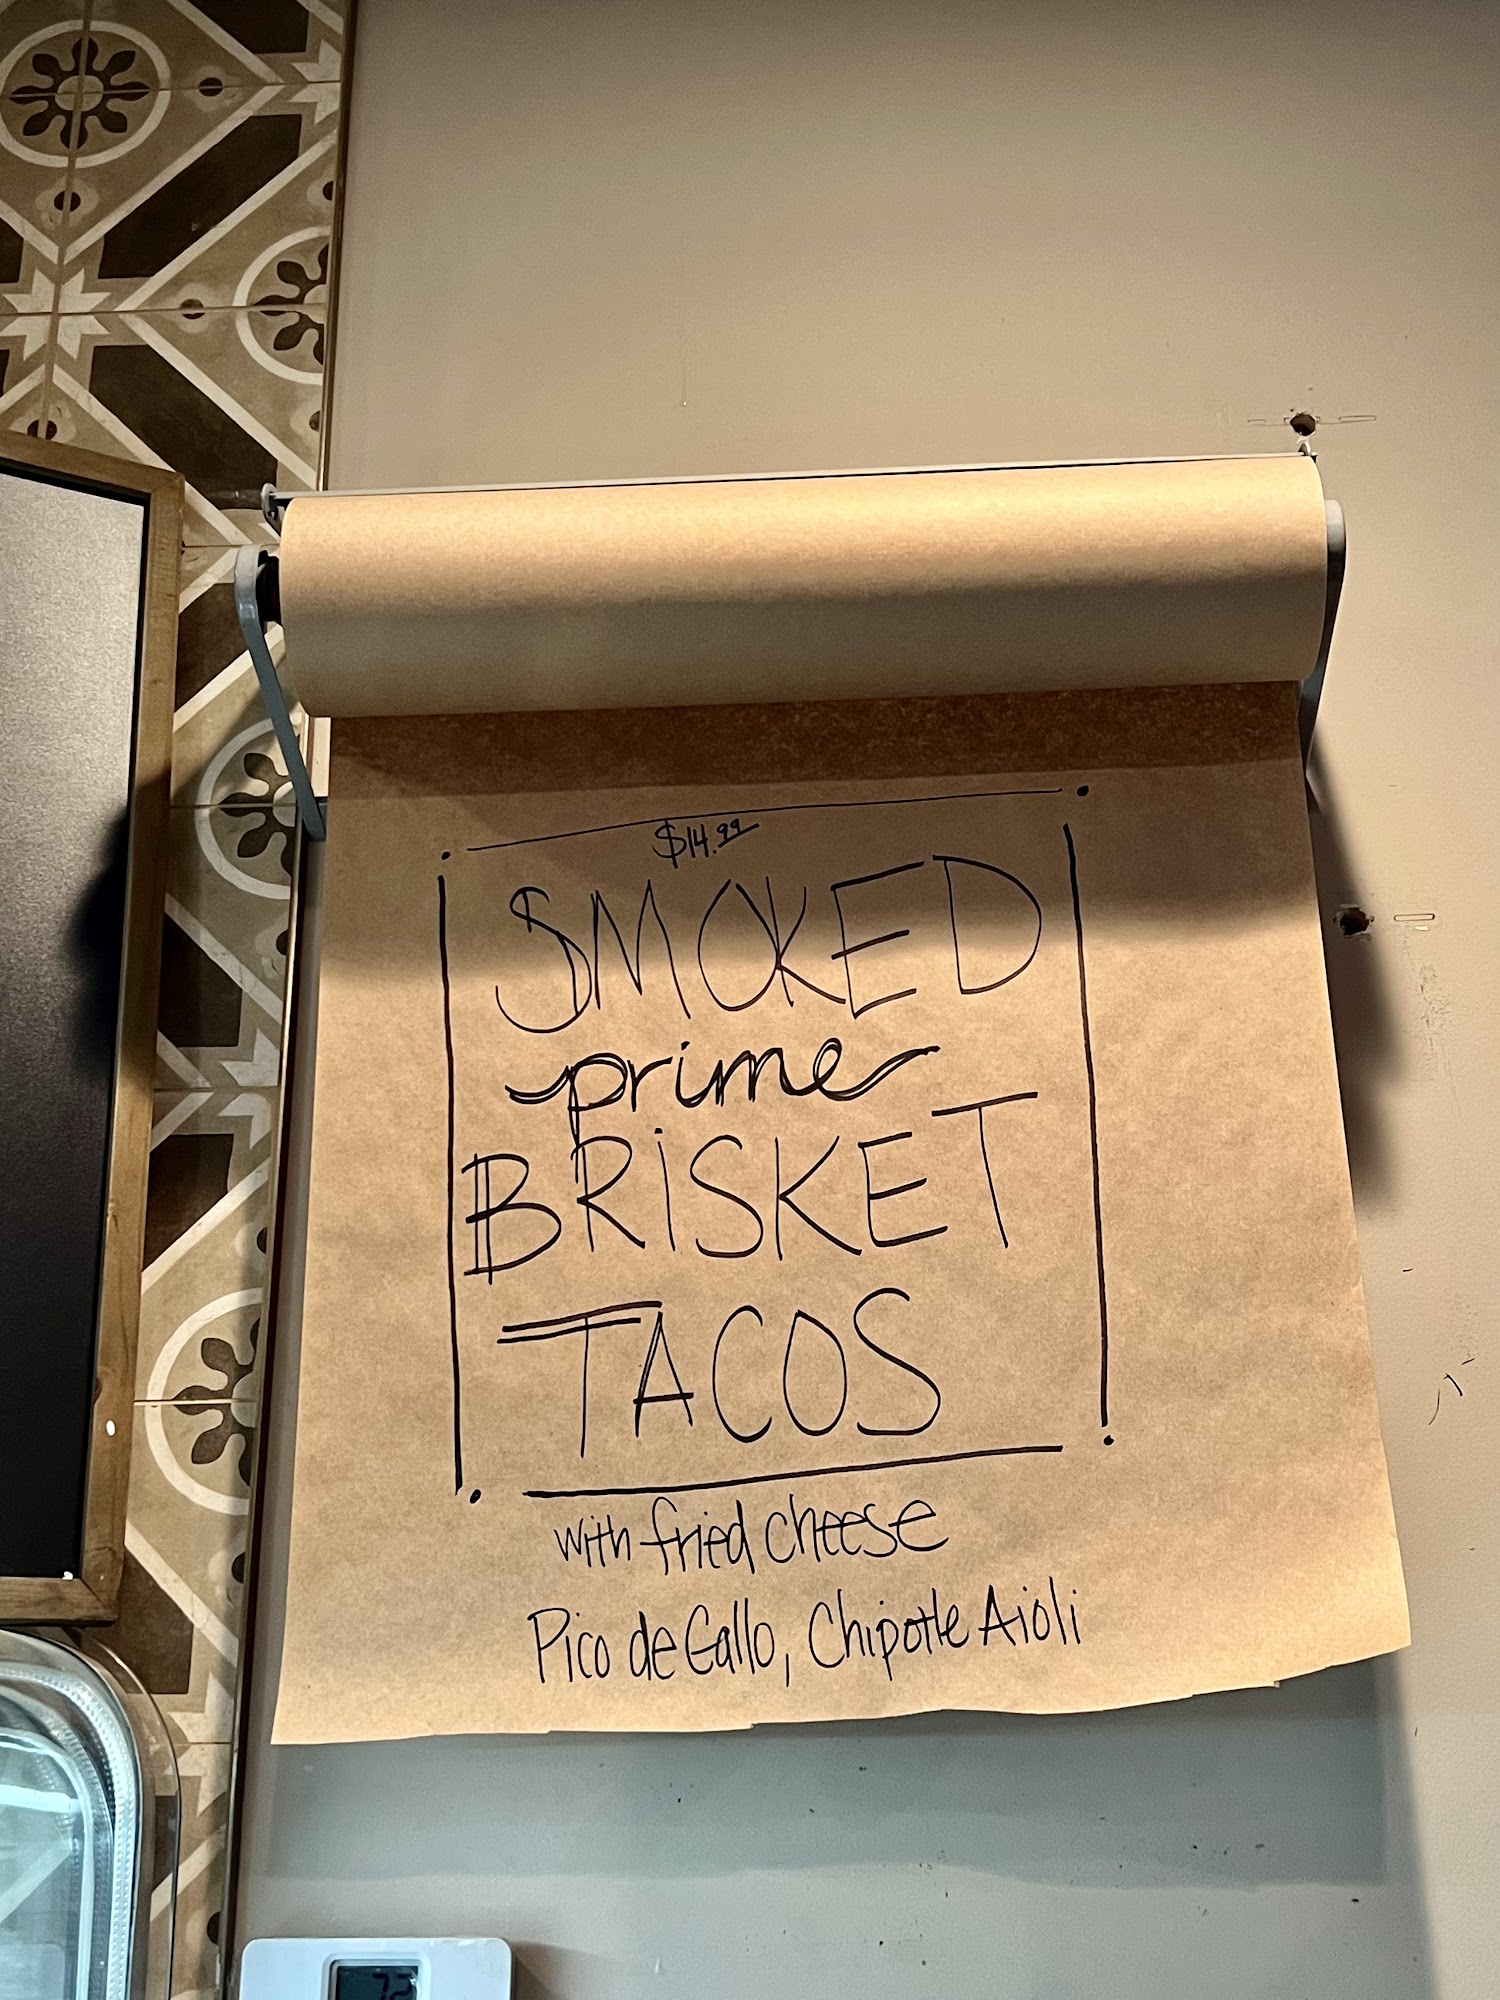 $14.99
SMOKED
prime
BRiSKET
TACOS
with fried cheese
Pico de Gallo, Chipotle Aioli
72